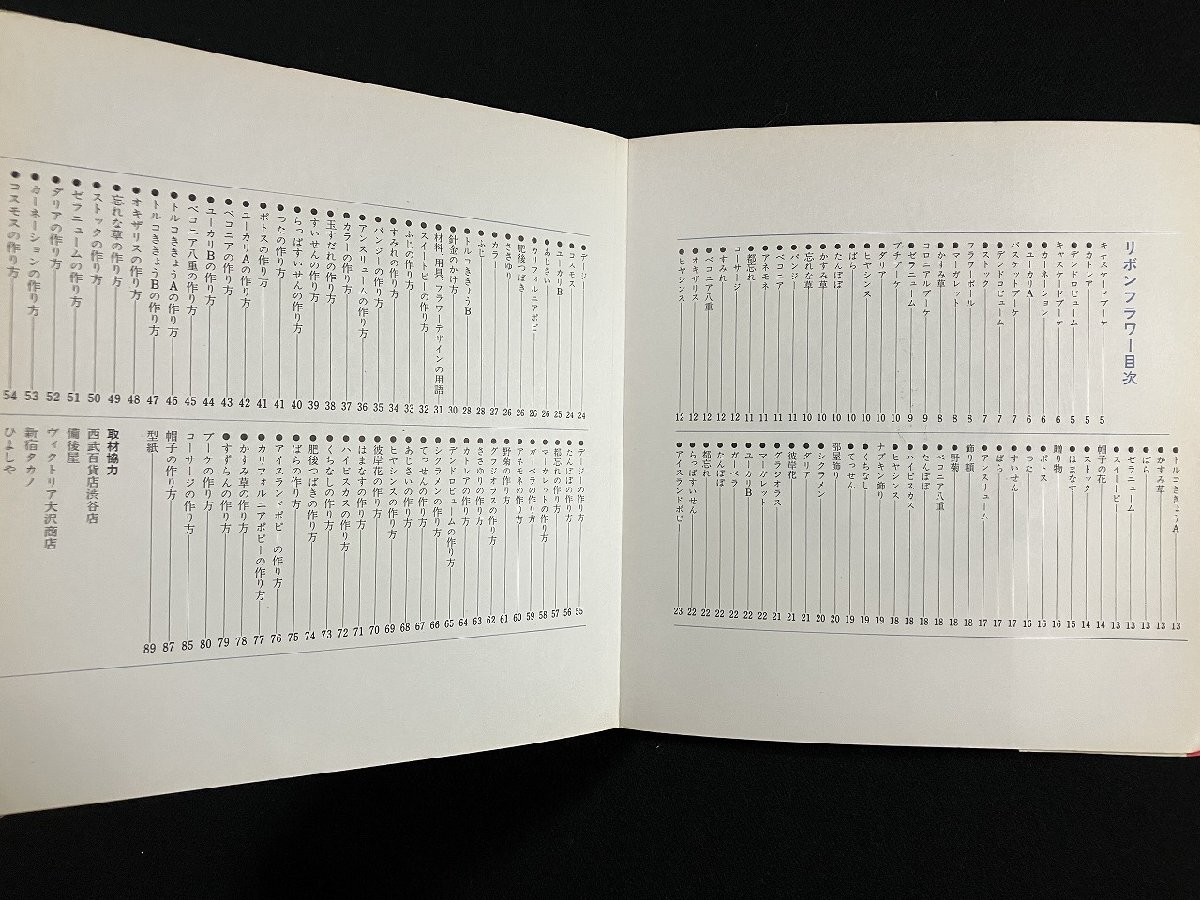 リボンフラワー目次
キャスケードブーケ 5
●カトレア 5
●デンドロビューム 5
キャスケードブーケ 6
●カーネーション 6
●ユーカリA 6
バスケットブーケ 7
●デンドロビューム 7
●ストック 7
フラワーボール 8
●マーガレット 8
●かすみ草 8
コロニアルブーケ 9
●ゼラニューム 9
プチブーケ 10
●ダリア 10
●ヒヤシンス 10
●ばら 10
●たんぽぽ 10
●かすみ草 10
●忘れな草 10
●パンジー 11
●ベコニア 11
●アネモネ 11
●都忘れ 11
コーサージ 12
●すみれ 12
●ベコニア八重 12
●オキザリス 12
●ヒヤシンス 12
●トルコききょうA 13
●かすみ草 13
●ばら 13
●ゼラニューム 13
●スイートピー 13
帽子の花 14
●ストック 14
●はまなす 15
贈り物 16
●ポトス 16
●つた 16
●すいせん 17
●ばら 17
●アンスリューム 17
飾り額 18
●野菊 18
●ベコニア八重 18
●たんぽぽ 18
●ハイビスカス 18
●ヒヤシンス 18
ナプキン飾り 19
●くちなし 19
●てっせん 19
部屋飾り 20
●シクラメン 20
●ダリア 21
●彼岸花 21
●グラジオラス 21
●マーガレット 22
●ユーカリB 22
●ガーベラ 22
●たんぽぽ 22
●都忘れ 22
●らっぱすいせん 22
●アイスランドポピー 23
●デージー 24
●コスモス 24
●ユーカリB 25
●あじさい 26
●カリフォルニアポピー 26
●肥後つばき 26
●ささゆり 26
●カラー 27
●ふじ 28
●トルコききょうB 28
●針金のかけ方 30
●材料、用具、フラワーデザインの用語 31
●スイートピーの作り方 32
●ふじの作り方 33
●すみれの作り方 34
●パンジーの作り方 35
●アンスリュームの作り方 36
●カラーの作り方 37
●玉すだれの作り方 38
●すいせんの作り方 39
●らっぱすいせんの作り方 40
●つたの作り方 41
●ポトスの作り方 41
●ユーカリAの作り方 42
●ベコニアの作り方 43
●ユーカリBの作り方 44
●ベコニア八重の作り方 45
●トルコききょうAの作り方 46
●トルコききょうBの作り方 47
●オキザリスの作り方 48
●忘れな草の作り方 49
●ストックの作り方 50
●ゼラニュームの作り方 51
●ダリアの作り方 52
●カーネーションの作り方 53
●コスモスの作り方 54
●デージーの作り方 55
●たんぽぽの作り方 56
●都忘れの作り方 57
●マーガレットの作り方 58
●ガーベラの作り方 59
●アネモネの作り方 60
●野菊の作り方 61
●グラジオラスの作り方 62
●ささゆりの作り方 63
●カトレアの作り方 64
●デンドロビュームの作り方 65
●シクラメンの作り方 66
●てっせんの作り方 67
●あじさいの作り方 68
●ヒヤシンスの作り方 69
●彼岸花の作り方 70
●はまなすの作り方 71
●ハイビスカスの作り方 72
●くちなしの作り方 73
●肥後つばきの作り方 74
●ばらの作り方 75
●アイスランドポピーの作り方 76
●カリフォルニアポピーの作り方 77
●かすみ草の作り方 78
●すずらんの作り方 79
ブーケの作り方 80
コーサージの作り方 85
帽子の作り方 87
型紙 89
取材協力
西武百貨店渋谷店
備後屋
ヴィクトリア大沢商店
新宿タカノ
ひょしや